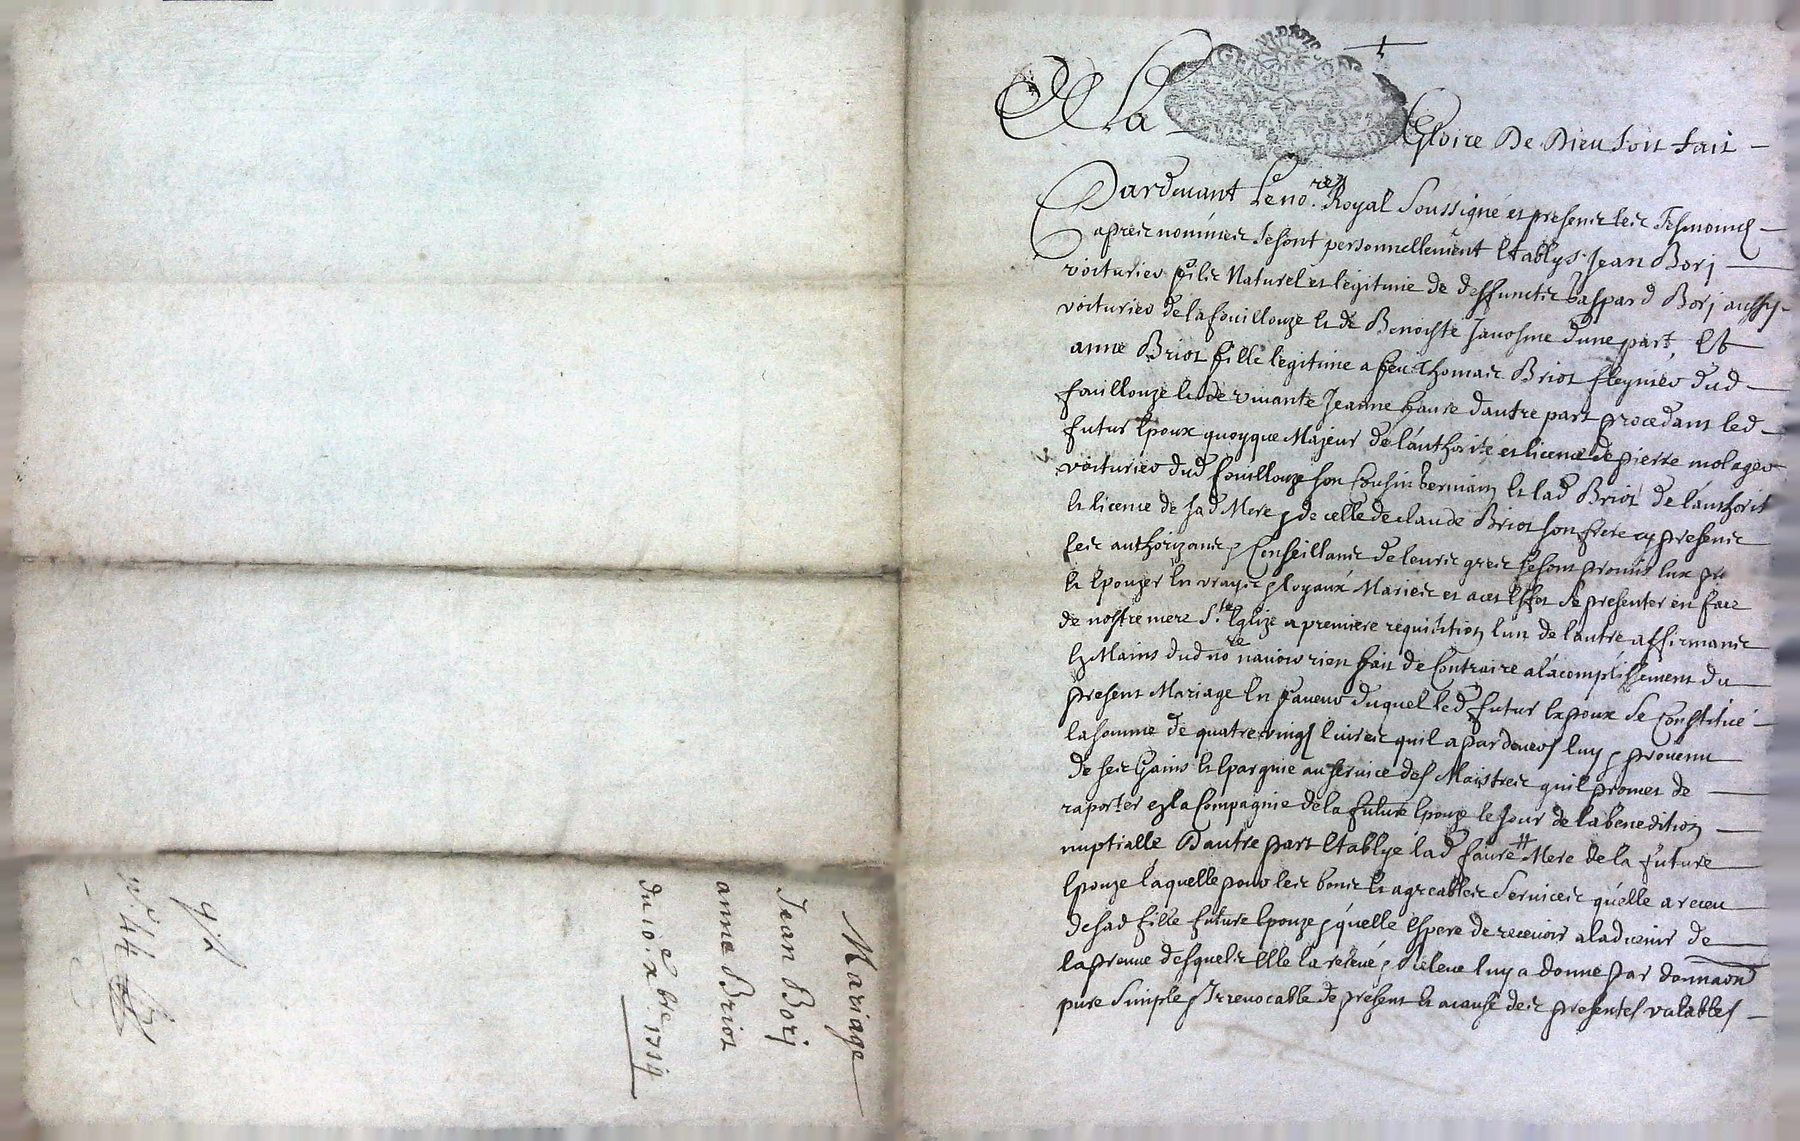 Mariage
Jean Borj
anne Briot
du 10e xbre 1714
44
A La Gloire De Dieu soit fait
Pardevant Le nore Royal soussigné et presents les Tesmoings
apres nommes se sont personnellement Etablys Jean Borj
voiturier fils Naturel et legitime de deffuncts Gaspard Borj aussy
voiturier de la fouillouze et de Benoiste Janosme d'une part, Et
anne Briot fille legitime a feu Thomas Briot dud
fouillouze et de vivante Jeanne faure d'autre part procedant led
futur Epoux quoyque Majeur de l'authorité et licence de pierre molager
voiturier dud fouillouze son Cousin Germain et lad Briot de l'authorité
et licence de sad Mere, de celle de claude Briot son frere cy presents
les authorizants, Conseillants de leurs grés se sont promis
et Epouzer En vrays, loyaux Mariés et a cet Effet se presenter en face
de nostre mere Ste Eglize a premiere requisition l'un de l'autre affirmants
Ez Mains dud nore n'avoir rien fait de Contraire a l'acomplissement du
present Mariage En faveur duquel led futur Expoux se Constitue
la somme de quatre vingt livres qu'il a pardevers luy, provenu
de ses Gains et Epargnie au service des Maistres qu'il promet de
raporter ez la Compagnie de la future Epouze le Jour de la benedition
nuptialle D'autre part Etablye lad faure Mere de la future
Epouze laquelle pour les bons et agreables services qu'elle a receu
de sad fille future Epouze, qu'elle Espere de recevoir a ladvenir de
la preuve desquels Elle la releve, releve luy a donne par donnaon
pure simple, Irrevocable de present et a cause des presentes valables